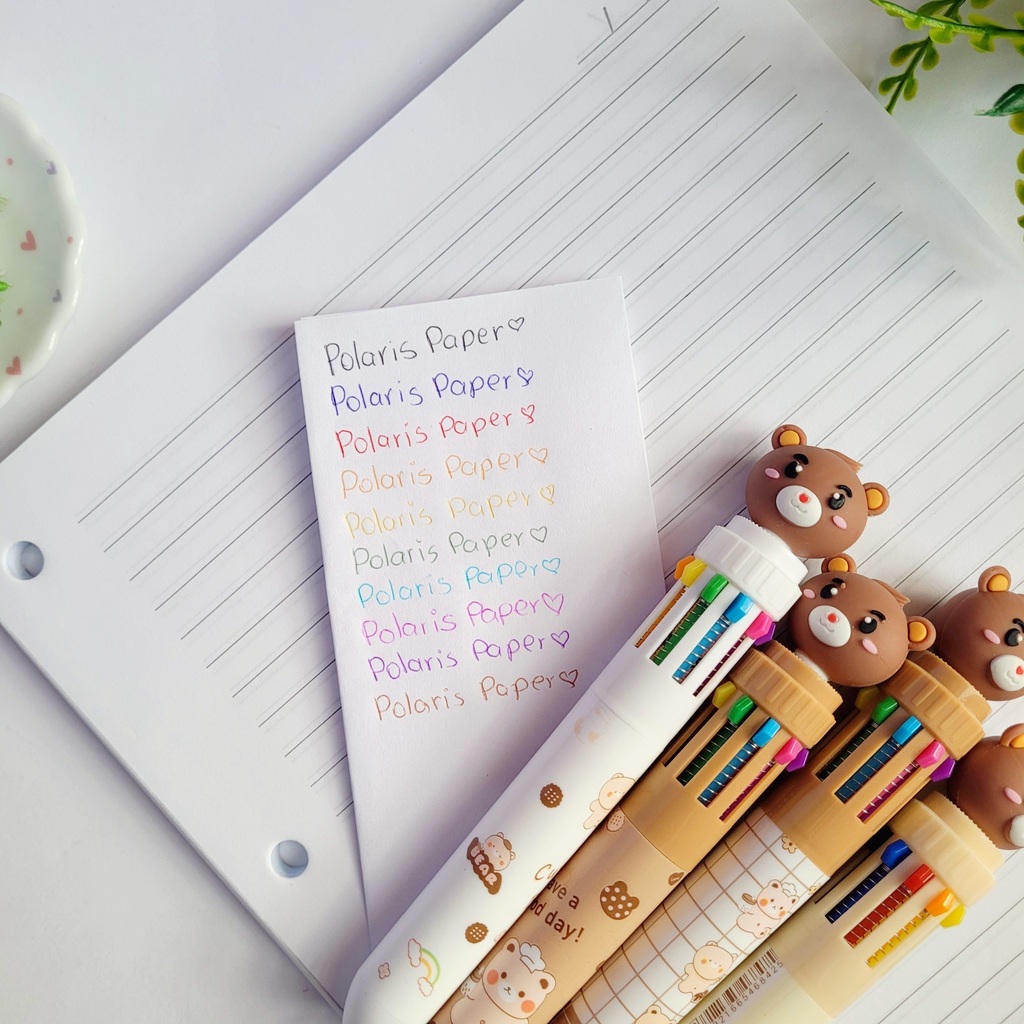 Polaris Paper♡
Polaris Paper♡
Polaris Paper♡
Polaris Paper♡
Polaris Paper♡
Polaris Paper♡
Polaris Paper♡
Polaris Paper♡
Polaris Paper♡
Polaris Paper♡
BEAR
day!